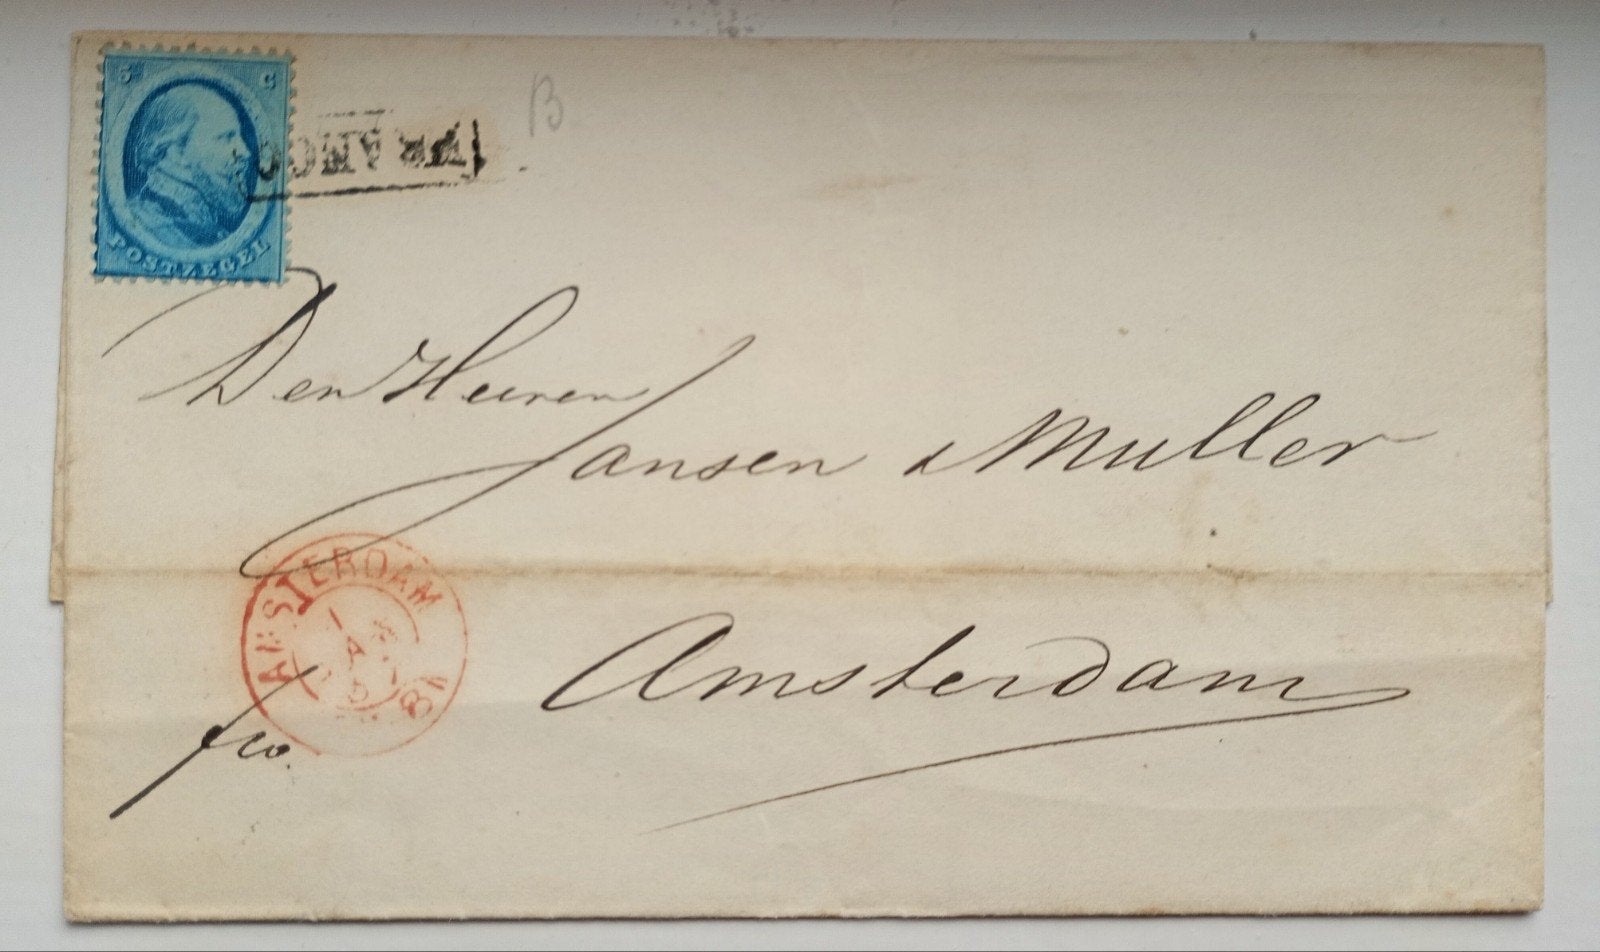 5 C
POSTZEGEL
B
Den Heeren
Jansen & Muller
AMSTERDAM
1
8
Amsterdam
fco.